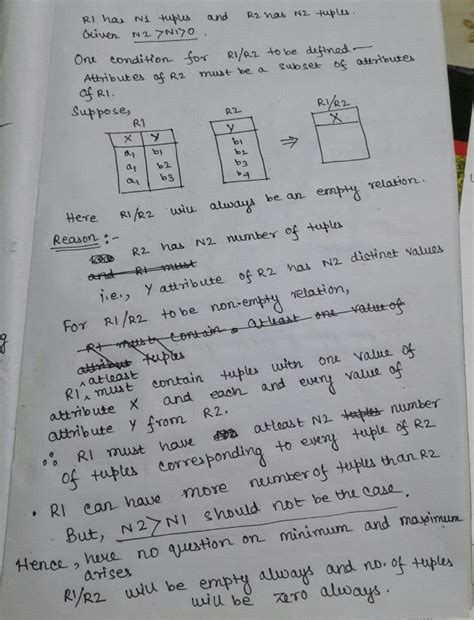 R1 has N1 tuples and R2 has N2 tuples.
Given N2 >N1>0.
One condition for R1/R2 to be defined—
Attributes of R2 must be a subset of attributes
of R1.
Suppose,
R1 R2 R1/R2
X Y Y X
a1 b1 b1
a1 b2 b2
a1 b3 b3
b4
⇒
Here R1/R2 will always be an empty relation.
Reason :-
R2 has N2 number of tuples
and R1 must
i.e., Y attribute of R2 has N2 distinct values
For R1/R2 to be non-empty relation,
R1 must contain atleast one value of
attribut tuples
R1 atleast must contain tuples with one value of
attribute X and each and every value of
attribute Y from R2.
∴ R1 must have atleast N2 tuples number
of tuples corresponding to every tuple of R2
• R1 can have more number of tuples than R2
But, N2>N1 should not be the case.
Hence, here no question on minimum and maximum
arises
R1/R2 will be empty always and no. of tuples
will be zero always.